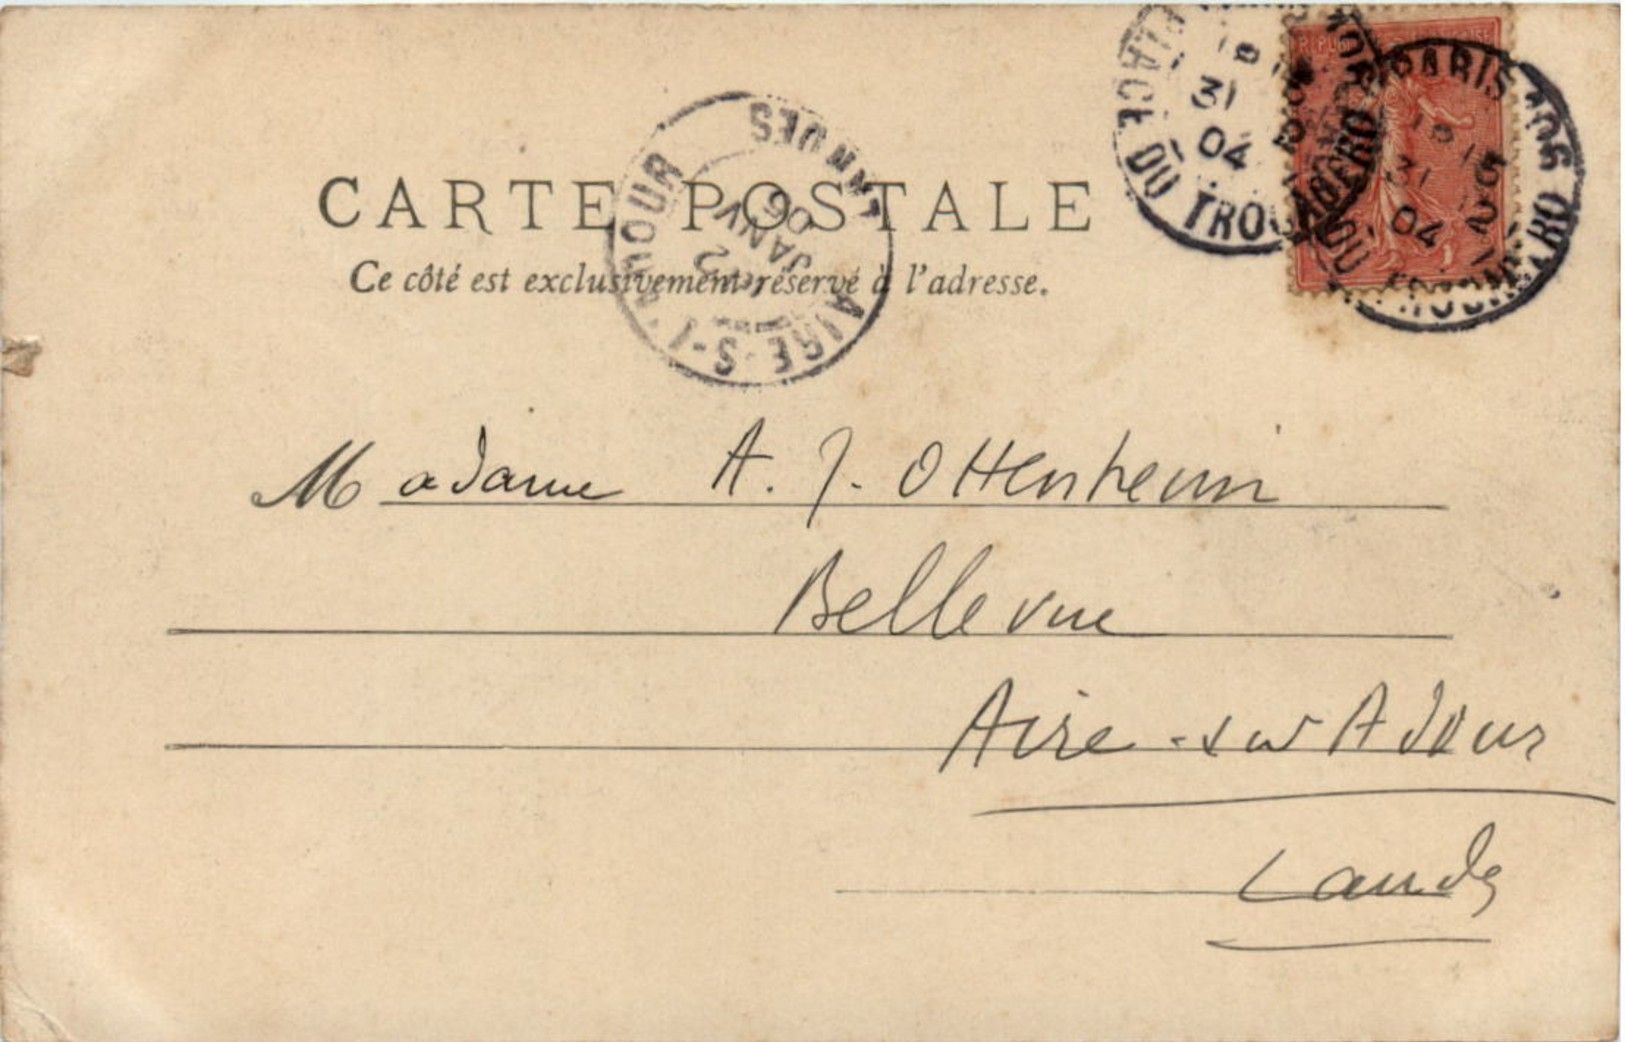 CARTE POSTALE
Ce côté est exclusivement réservé à l'adresse.
PLACE DU TROCADERO
31
04
PARIS 106
31
04
AIRE-S-L'ADOUR
LANDES
2
JANV
06
Madame A. J. Ottenheim
Bellevue
Aire-sur Adour
Landes